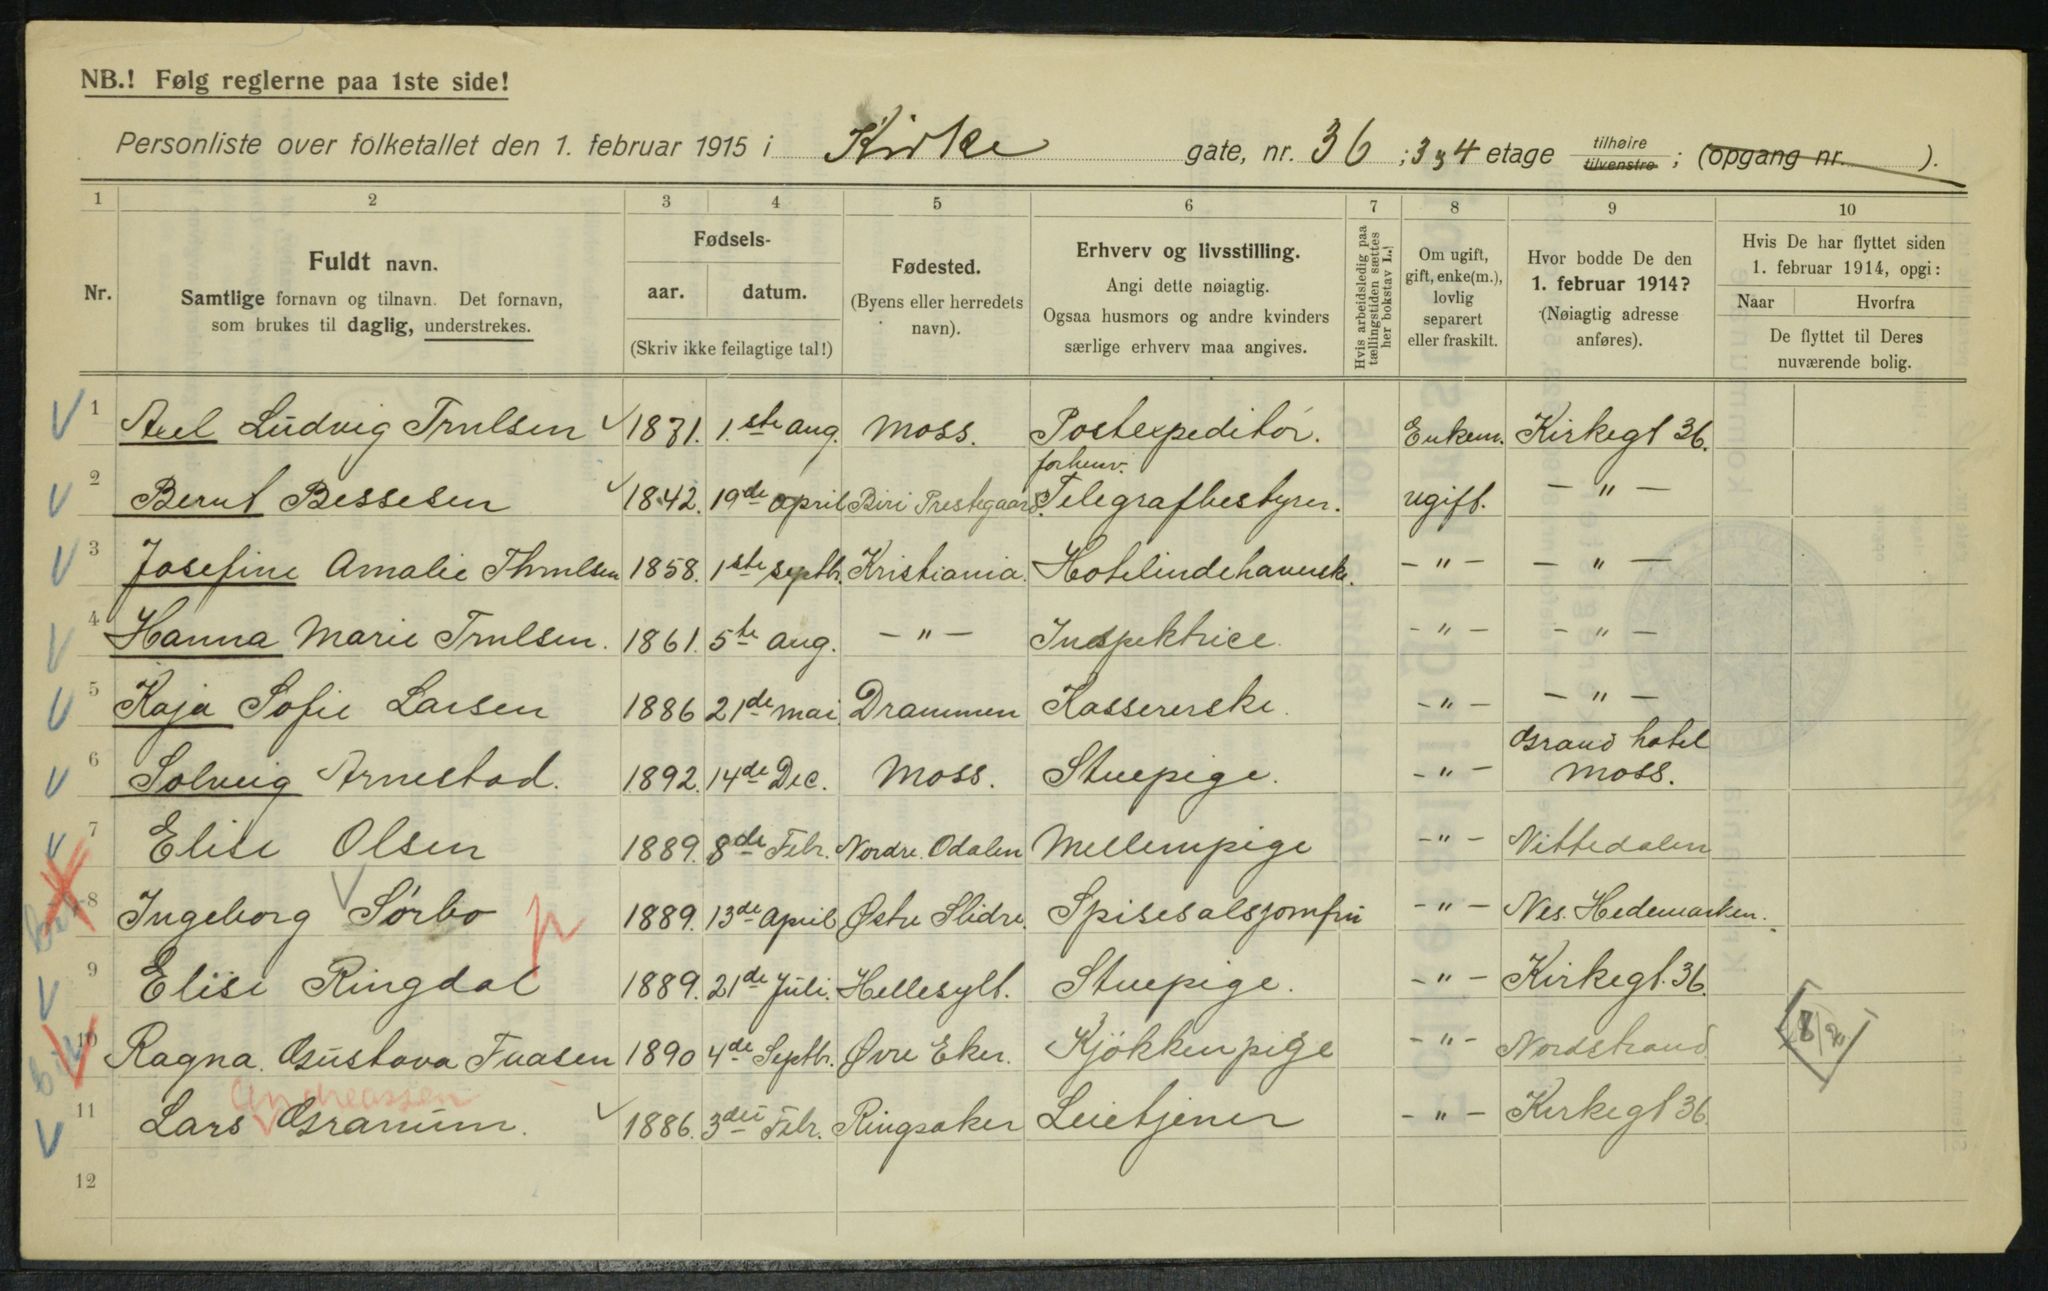 NB.! Følg reglerne paa 1ste side!
Personliste over folketallet den 1. februar 1915 i Kirke gate, nr. 36; 3 og 4 etage tilhøire tilvenstre; (opgang nr. ).
1 2 3 4 5 6 7 8 9 10
Nr.
Fuldt navn.
Samtlige fornavn og tilnavn. Det fornavn,
som brukes til daglig, understrekes.
Fødsels-
aar. datum.
(Skriv ikke feilagtige tal!)
Fødested.
(Byens eller herredets
navn).
Erhverv og livsstilling.
Angi dette nøiagtig.
Ogsaa husmors og andre kvinders
særlige erhverv maa angives.
Hvis arbeidsledig paa
tællingstiden sættes
her bokstav L.!
Om ugift,
gift, enke(m.),
lovlig
separert
eller fraskilt.
Hvor bodde De den
1. februar 1914?
(Nøiagtig adresse
anføres).
Hvis De har flyttet siden
1. februar 1914, opgi:
Naar Hvorfra
De flyttet til Deres
nuværende bolig.
1 Axel Ludvig Trulsen 1871. 1.ste aug. Moss. Postexpeditør. Enkem. Kirkegt 36.
2 Bernt Bessesen 1842. 19de april Biri Prestegaard. forhenv. Telegrafbestyrer. ugift. — " —
3 Josefine Amalie Thrulsen 1858. 1ste septbr. Kristiania. Hotelindehaverske. — " — — " —
4 Hanna Marie Trulsen. 1861. 5te aug. — " — Inspektrice. — " — — " —
5 Kaja Sofie Larsen 1886 21de mai Drammen Kassererske. — " — — " —
6 Solveig Arnestad. 1892. 14de Dec. Moss. Stuepige. — " — Grand hotel Moss.
7 Elise Olsen 1889. 8de Febr. Nordre Odalen Mellempige — " — Nittedalen
8 Ingeborg Sørbo 1889. 13de April Østre Slidre. Spisesalsjomfru — " — Nes. Hedemarken.
9 Elise Ringdal 1889. 21de Juli. Hellesylt. Stuepige. — " — Kirkegt. 36.
10 Ragna Gustava Fuasen 1890 4de Septbr. Øvre Eker. Kjøkkenpige — " — Nordstrand
Andreassen
11 Lars Granum. 1886. 3die Febr. Ringsaker Leietjener — " — Kirkegt 36.
12